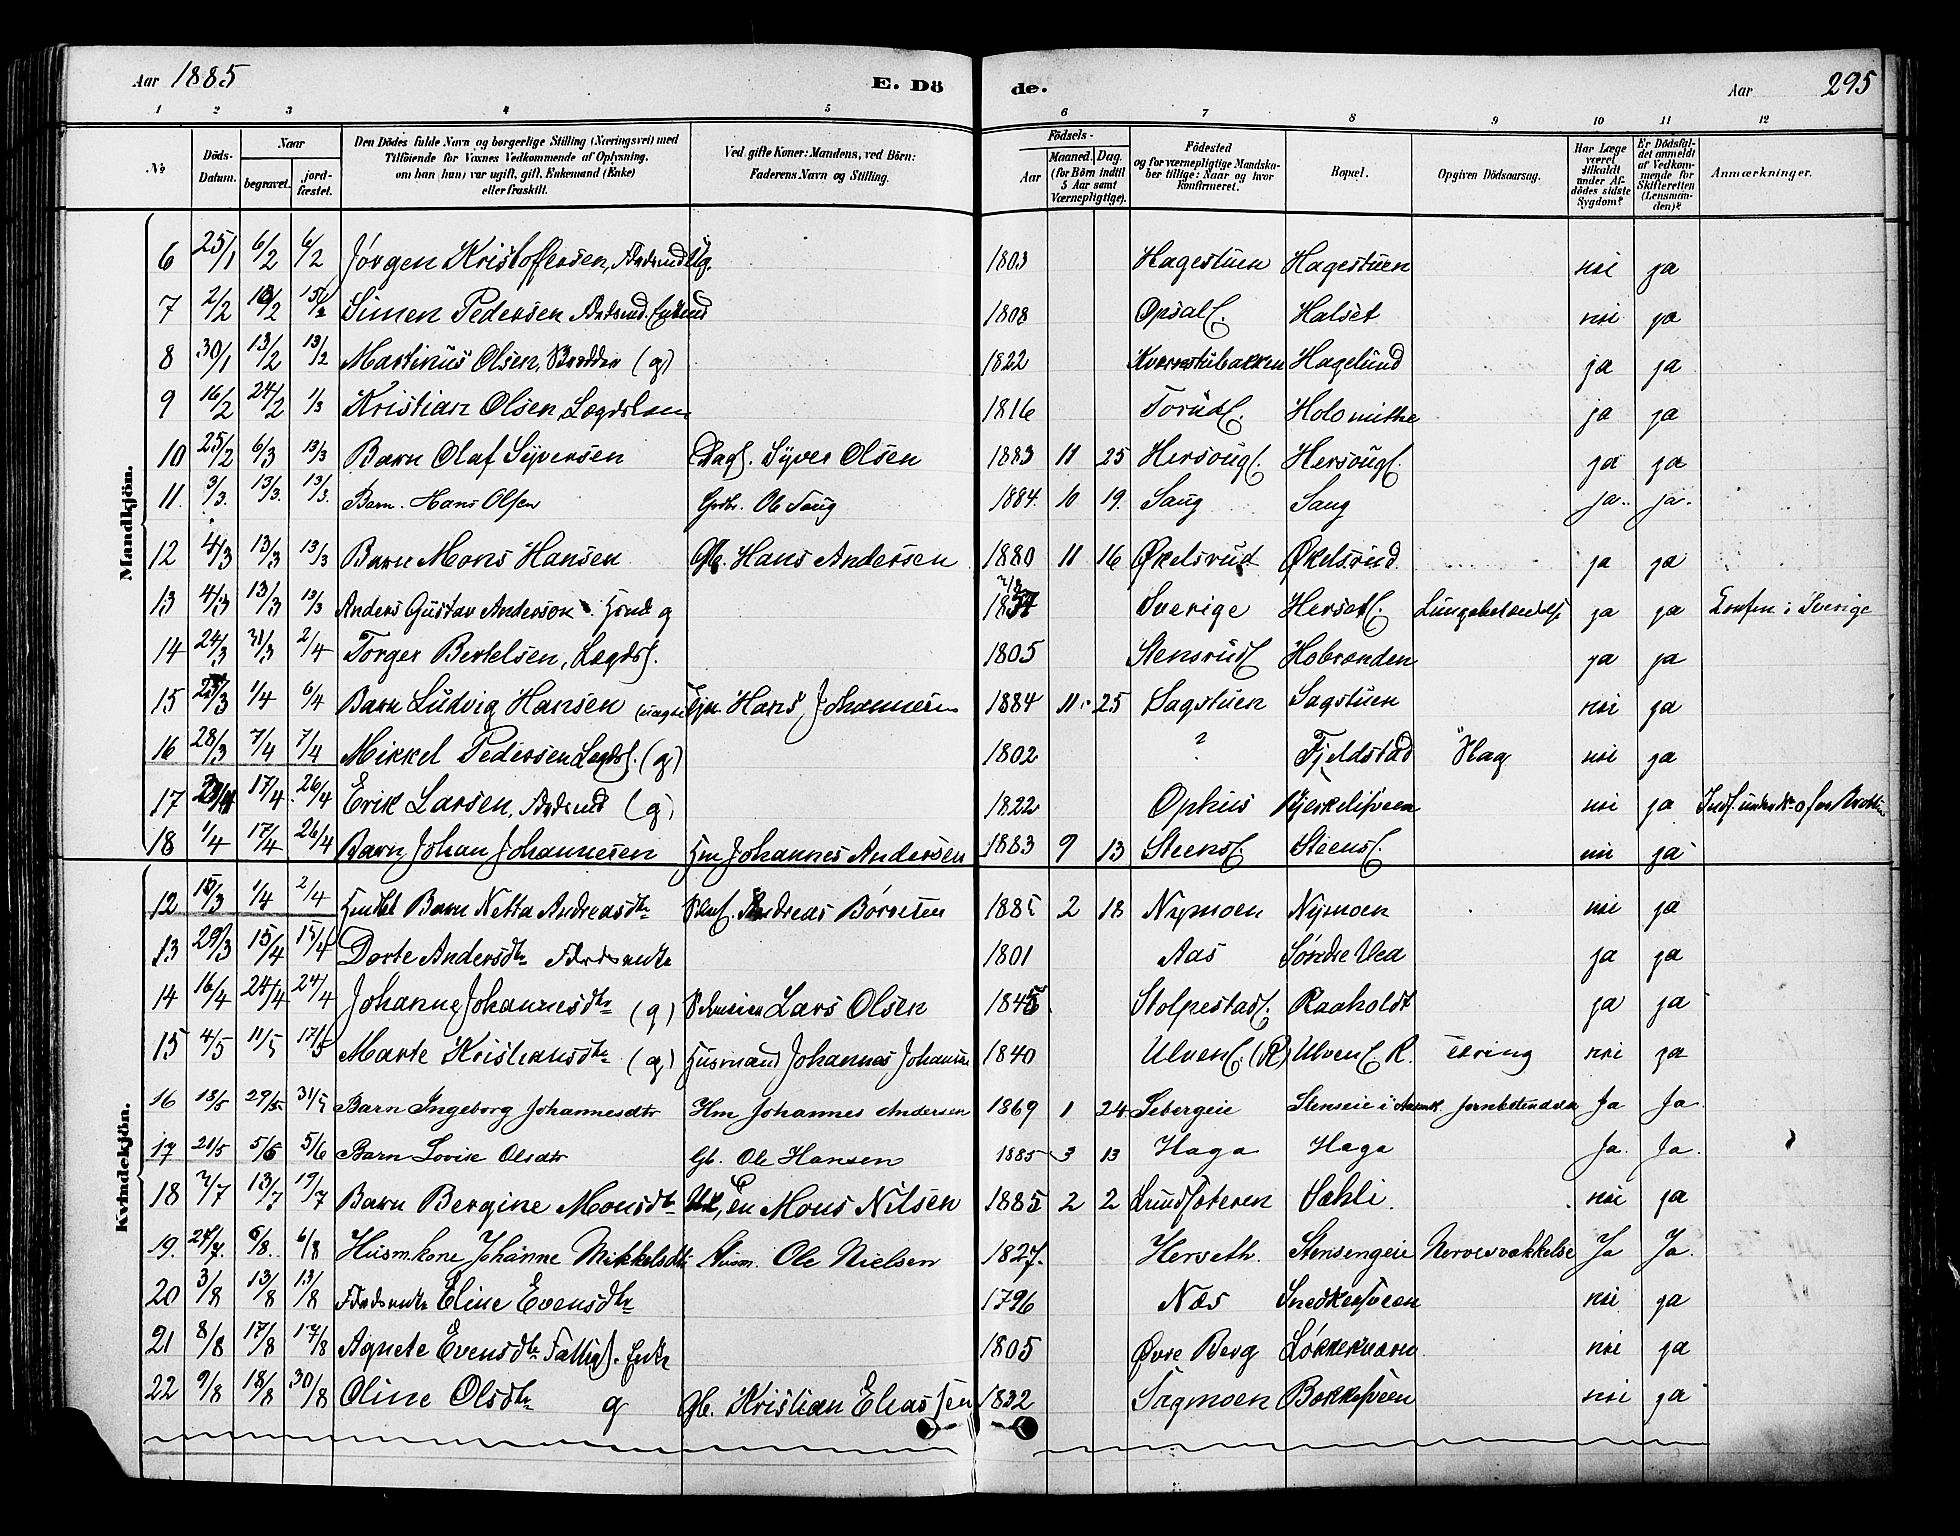 Aar 1885 E. Dö de. Aar 295
1 2 3 4 5 6 7 8 9 10 11 12
No Döds-Datum. Naar begravet. jordfæstet. Den Dödes fulde Navn og borgerlige Stilling (Næringsvei) med Tilföiende for Voxnes Vedkommende af Oplysning, om han (hun) var ugift, gift, Enkemand (Enke) eller fraskilt. Ved gifte Koner: Mandens, ved Börn: Faderens Navn og Stilling. Födsels- Aar Maaned. Dag. (for Börn indtil 5 Aar samt Værnepligtige). Födested og for værnepligtige Mandskaber tillige: Naar og hvor konfirmeret. Bopæl. Opgiven Dödsaarsag. Har Læge været tilkaldt under Afdödes sidste Sygdom? Er Dödsfaldet anmeldt af Vedkommende for Skifteretten (Lensmanden)? Anmærkninger.
Mandkjön.
6 25/1 6/2 6/2 Jörgen Kristoffersen, 1803 Hagestuen Hagestuen nei ja
7 2/2 15/2 Simen Pedersen 1808 Opsal Halset nei ja
8 30/1 13/2 13/2 Martinus Olsen, (g) 1822 Hagelund ja ja
9 16/2 24/2 1/3 Kristian Olsen Lægdslem 1816 Torud ja ja
10 25/2 6/3 13/3 Barn Olaf Syversen Dags. Syver Olsen 1883 11 25 Hersoug Hersoug ja ja
11. 3/3. 13/3. 13/3. Barn. Hans Olsen Ole Saug 1884. 10 19. Saug Saug ja.. ja.
12 4/3 13/3 13/3 Barn Mons Hansen Gb. Hans Andersen 1880 11 16 Økelsrud Økelsrud ja ja
13 4/3 13/3 13/3 Anders Gustav Anderson g Sverige Lungebetændelse ja ja i Sverige
14 24/3 31/3 2/4 Torger Bertelsen, Lægds. 1805 Stensrud Hobranden ja ja
15 1/4 6/4 Barn Ludvig Hansen (uægte) Hans Johannesen 1884 11 25 Sagstuen Sagstuen nei ja
16 28/3 7/4 7/4 Mikkel Pedersen Lægds. (g) 1802 ? Fjeldstad Slag nei ja
17 17/4 26/4 Erik Larsen, (g) 1822 Ophus nei ja
18 1/4 17/4 26/4 Barn Johan Johannesen Hm Johannes Andersen 1883 9 13 Steens Steens nei ja
Kvindekjön.
12 15/3 1/4 2/4 Barn Netta Andreasdtr Andreas Börresen 1885 2 18 Nymoen Nymoen nei ja
13 29/3 15/4 15/4 Dorte Andersdtr 1801 Aas Söndre Vea ja ja
14 16/4 24/4 24/4 Johanne Johannesdtr (g) Lars Olsen 1845 Stolpestad Raaholdt ja ja
15 4/5 11/5 17/5 Marte Kristiansdtr (g) Husmand Johannes Johansen 1840 Ulven (R) Ulven R. Tæring nei ja
16 18/5 29/5 31/5 Barn Ingeborg Johannesdtr Hm Johannes Andersen 1869 1 24 Sebergeie Stenseie i Ja Ja
17 21/5 5/6 5/6 Barn Lovise Olsdtr Gb. Ole Hansen 1885 3 13 Haga Haga Ja. Ja.
18 7/7 13/7 19/7 Barn Bergine Monsdtr Mons Nilsen 1885 2 2 Sæhli. nei ja
19. 24/7. 6/8. 6/8 Husm.kone Johanne Mikkelsdtr Husm. Ole Nielsen 1827. Herseth. Stensengeie Nervesvækkelse Ja Ja.
20 3/8 13/8 13/8 Eline Evensdtr 1796 Næs Snedkersveen nei ja
21 8/8 17/8 17/8 Agnete Evensdtr Fattigl. Enke 1805 Øvre Berg Løkkekværn nei ja
22 9/8 18/8 30/8 Oline Olsdtr g Gb. Kristian Eliassen 1832 Sagmoen Bakkesveen nei ja